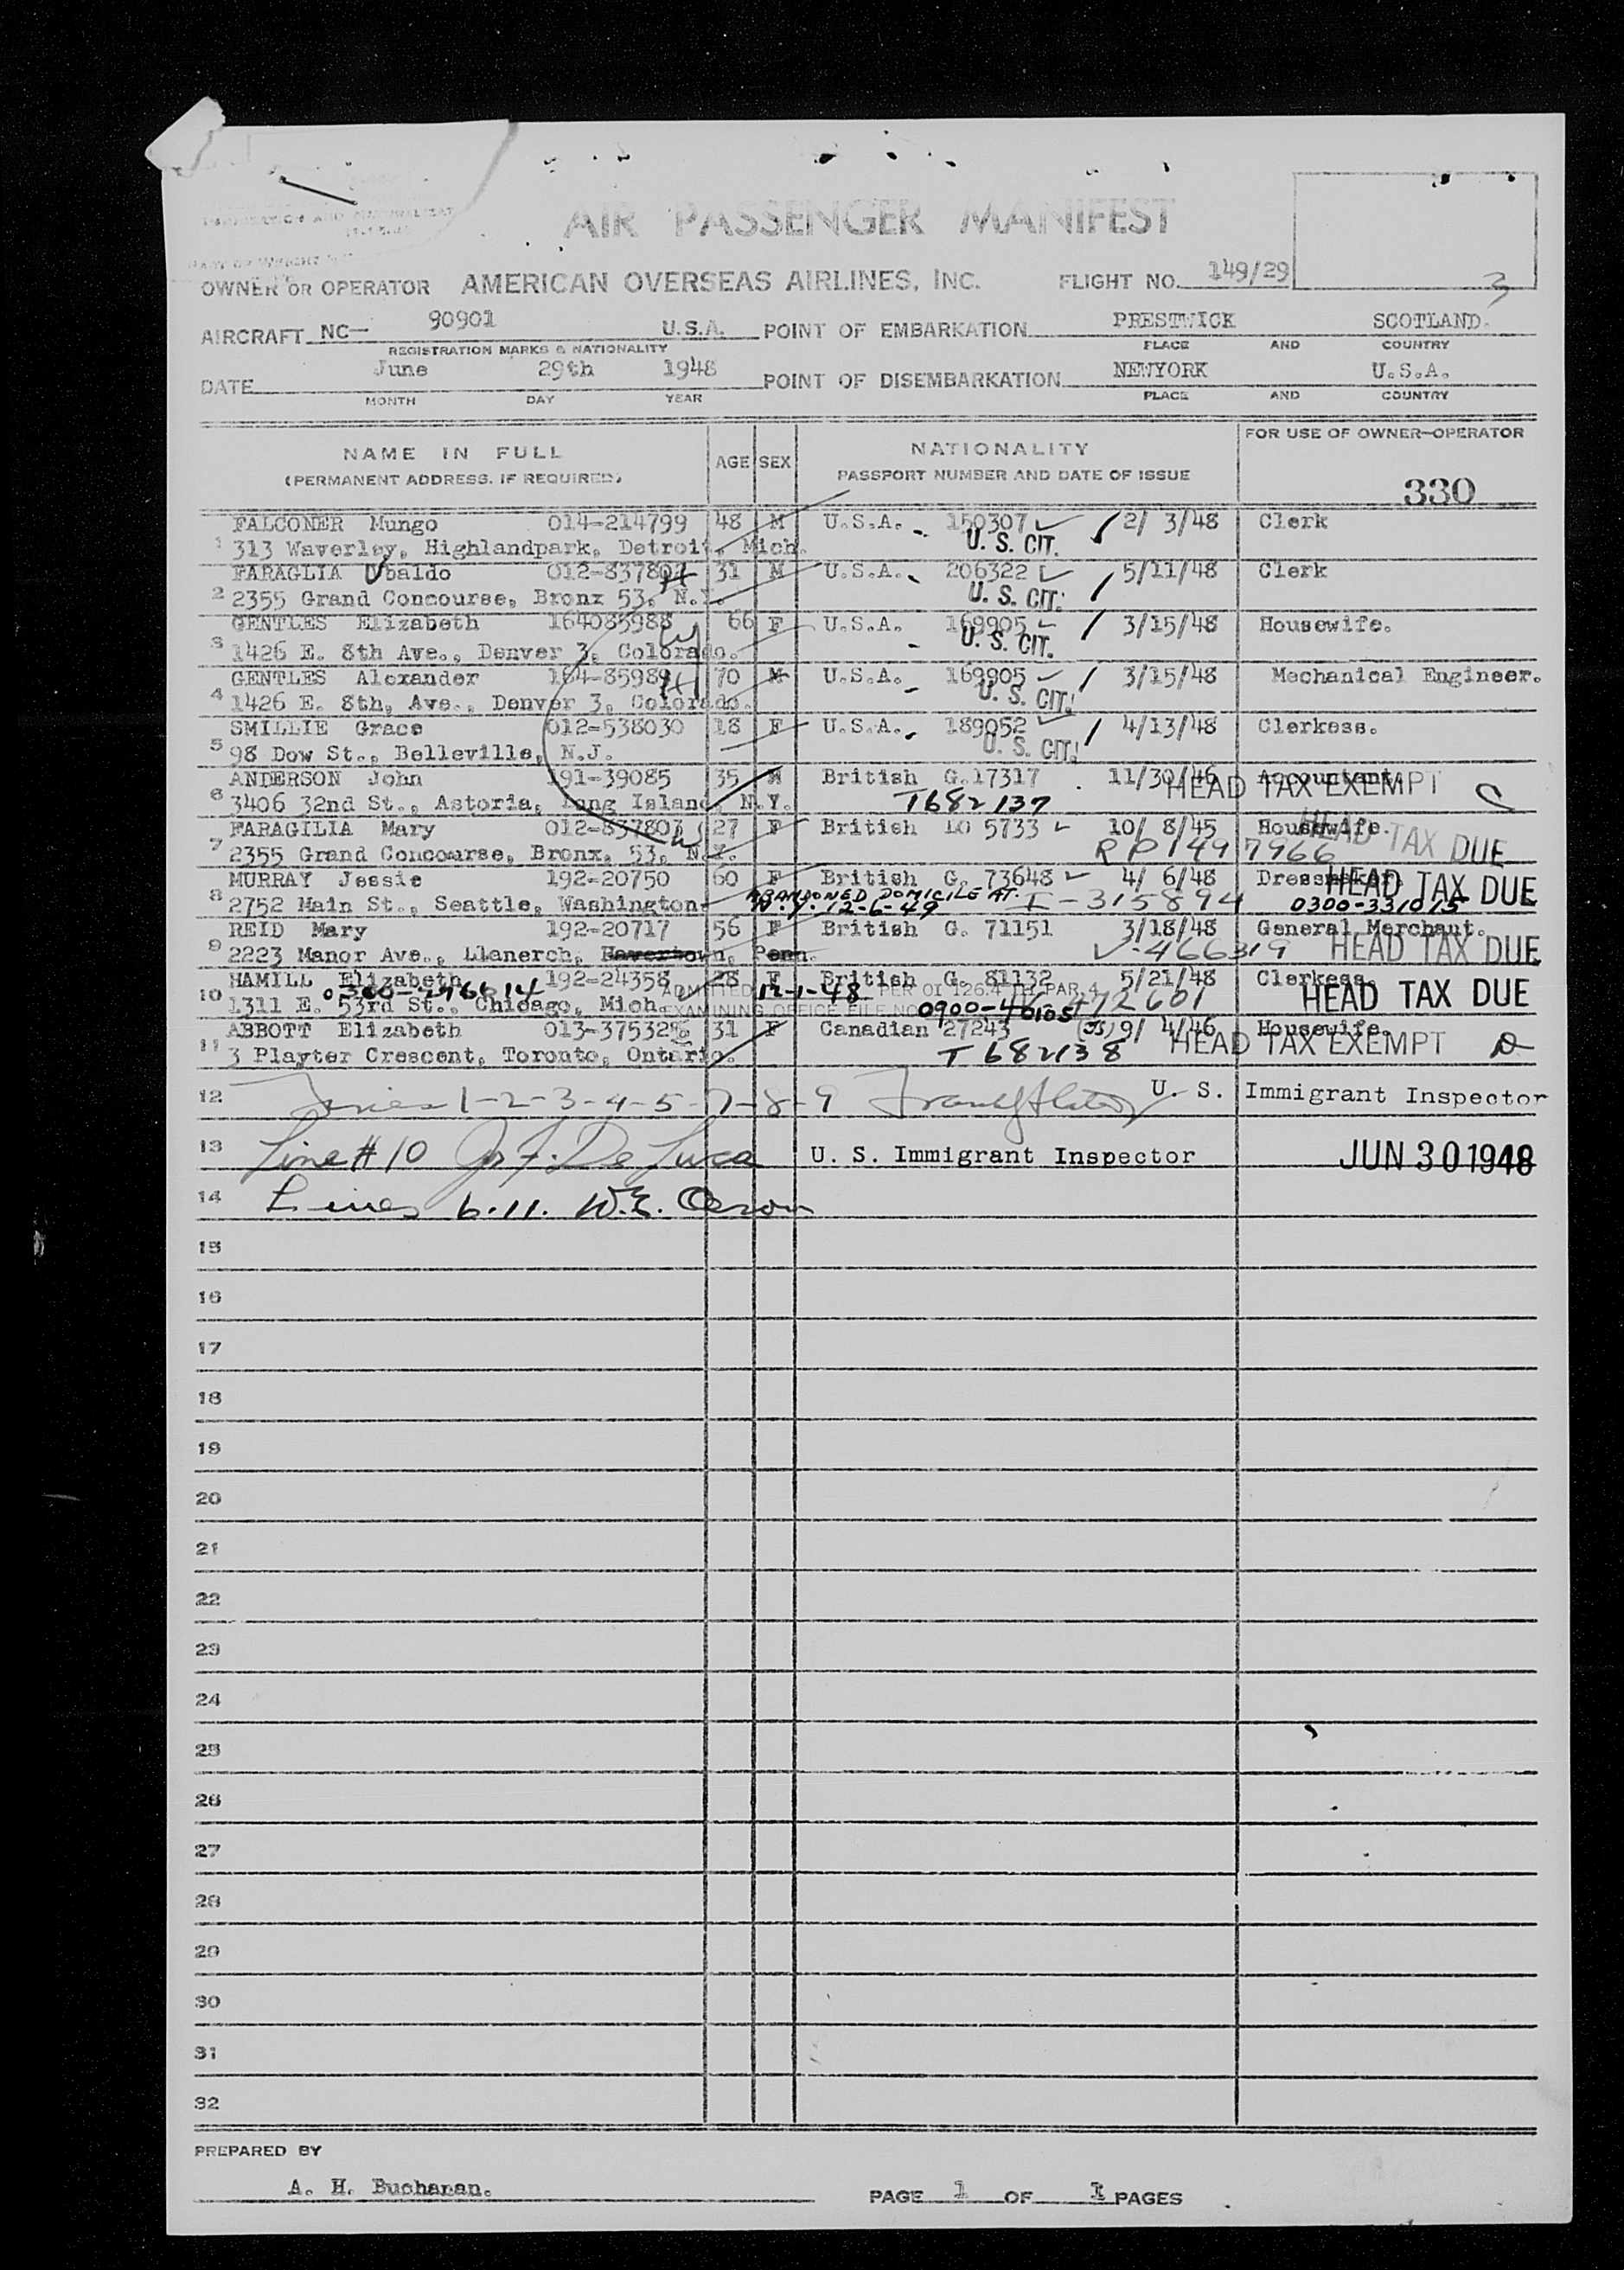 AIR PASSENGER MANIFEST
OWNER OR OPERATOR AMERICAN OVERSEAS AIRLINES, INC. FLIGHT NO. 149/29
3
AIRCRAFT NC— 90901 U.S.A. POINT OF EMBARKATION PRESTWICK SCOTLAND.
REGISTRATION MARKS & NATIONALITY PLACE AND COUNTRY
DATE June 29th 1948 POINT OF DISEMBARKATION NEWYORK U.S.A.
MONTH DAY YEAR PLACE AND COUNTRY
NAME IN FULL AGE SEX NATIONALITY FOR USE OF OWNER-OPERATOR
(PERMANENT ADDRESS. IF REQUIRED) PASSPORT NUMBER AND DATE OF ISSUE
330
FALCONER Mungo 014-214799 48 M U.S.A. 150307 2/ 3/48 Clerk
1 313 Waverley, Highlandpark, Detroit, Mich. U. S. CIT.
FARAGLIA Ubaldo 012-837807 31 M U.S.A. 206322 5/11/48 Clerk
2 2355 Grand Concourse, Bronx 53, N.Y. U. S. CIT.
GENTLES Elizabeth 164085988 66 F U.S.A. 169905 3/15/48 Housewife.
3 1426 E. 8th Ave., Denver 3, Colorado. U. S. CIT.
GENTLES Alexander 164-85989 70 M U.S.A. 169905 3/15/48 Mechanical Engineer.
4 1426 E. 8th, Ave., Denver 3, Colorado. U. S. CIT.
SMILLIE Grace 012-538030 18 F U.S.A. 189052 4/13/48 Clerkess.
5 98 Dow St., Belleville, N.J. U. S. CIT.
ANDERSON John 191-39085 35 M British G.17317 11/30/46 Accountant. HEAD TAX EXEMPT
6 3406 32nd St., Astoria, Long Island, N.Y. T682137
FARAGILIA Mary 012-837807 27 F British LO 5733 10/ 8/45 Housewife. HEAD TAX DUE
7 2355 Grand Concourse, Bronx, 53, N.Y. RP1497966
MURRAY Jessie 192-20750 60 F British G. 73648 4/ 6/48 Dressmaker. HEAD TAX DUE
8 2752 Main St., Seattle, Washington. ABANDONED DOMICILE AT N.Y. 12-6-49 I-315894 0300-331015
REID Mary 192-20717 56 F British G. 71151 3/18/48 General Merchant.
9 2223 Manor Ave., Llanerch, Havertown, Penn. V-466319 HEAD TAX DUE
HAMILL Elizabeth 192-24358 28 F British G. 81132 5/21/48 Clerkess. HEAD TAX DUE
10 1311 E. 53rd St., Chicago, Mich. ADMITTED 12-1-48 PER OI 126.4 PAR.4 472601
EXAMINING OFFICE FILE NO
ABBOTT Elizabeth 013-375328 31 F Canadian 27243 9/ 4/46 Housewife.
11 3 Playter Crescent, Toronto, Ontario. T682138 HEAD TAX EXEMPT
12 1-2-3-4-5-7-8-9 U. S. Immigrant Inspector
13 Line # 10 De Luca U. S. Immigrant Inspector JUN 30 1948
14 Lines 6.11. W.E.
15
16
17
18
19
20
21
22
23
24
25
26
27
28
29
30
31
32
PREPARED BY
A. H. Buchanan.
PAGE 1 OF 1 PAGES